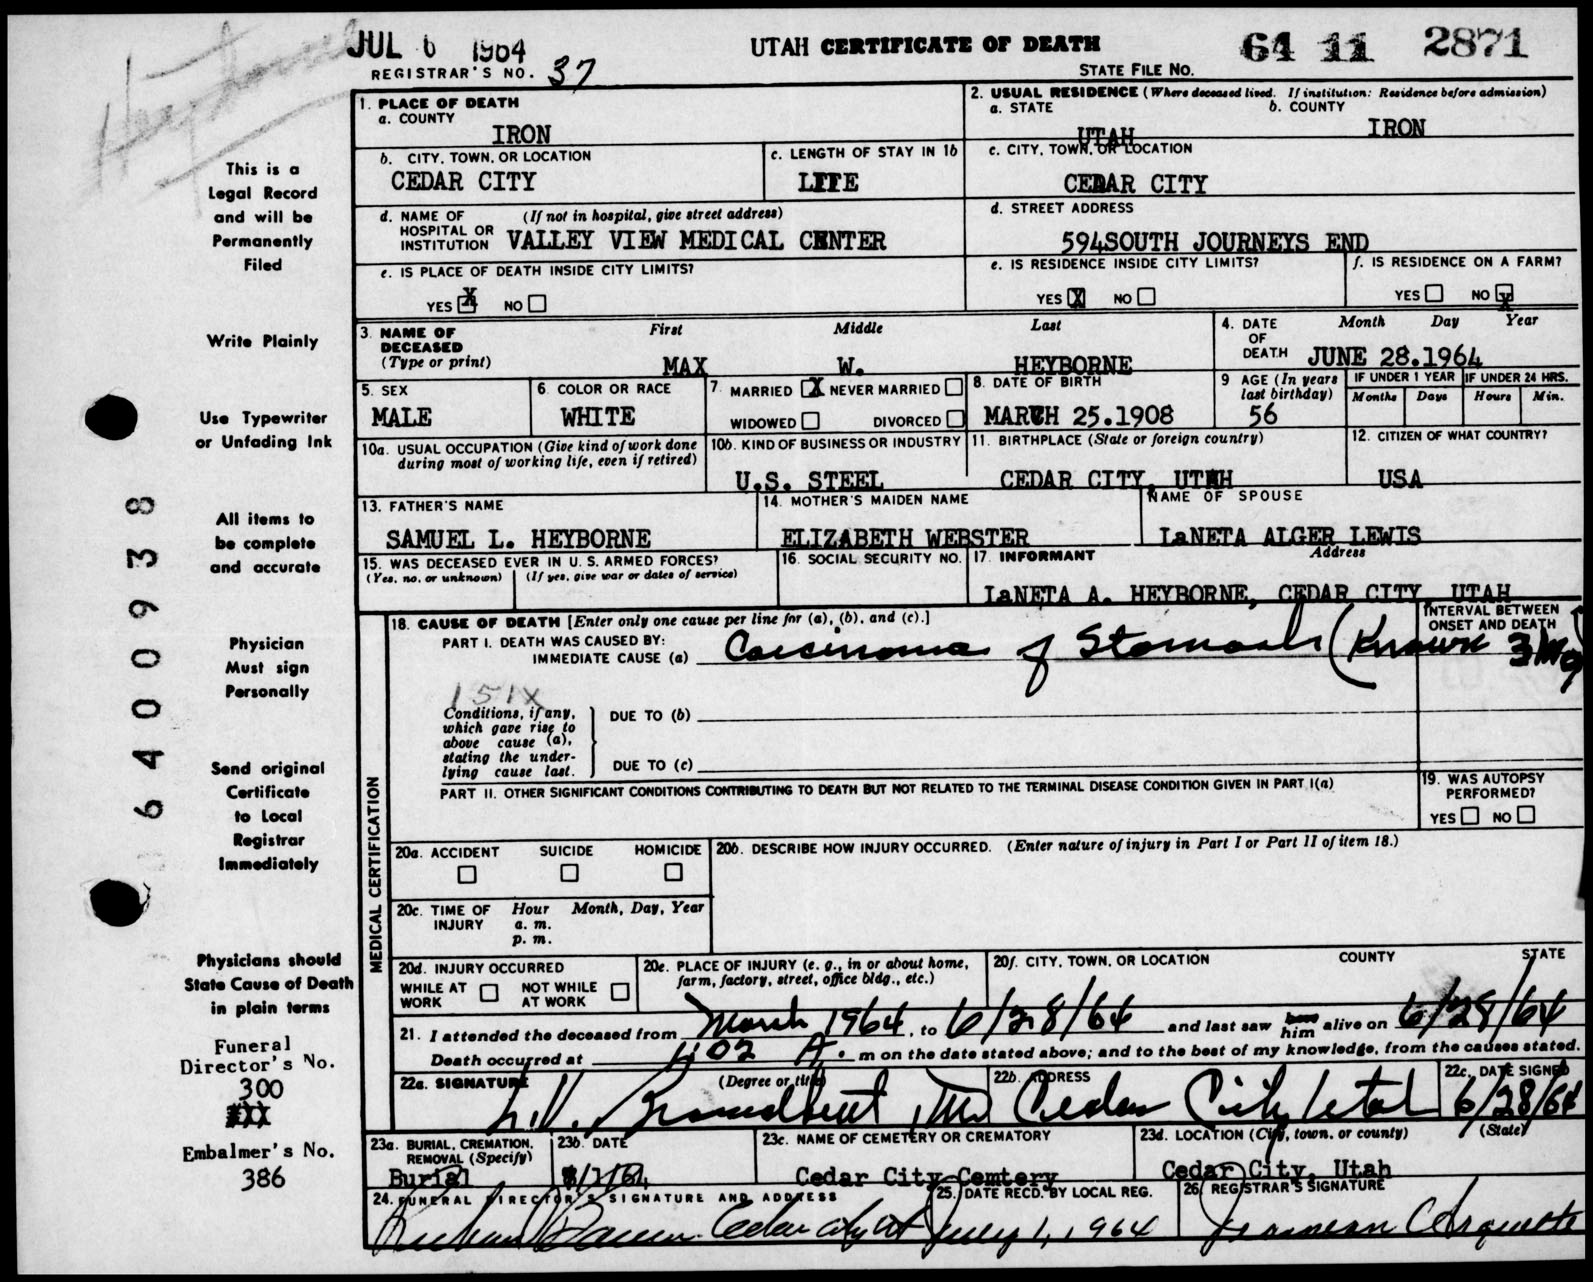 Heyborne
JUL 6 1964
UTAH CERTIFICATE OF DEATH
64 11 2871
REGISTRAR'S NO. 37
STATE FILE NO.
1. PLACE OF DEATH
a. COUNTY
IRON
2. USUAL RESIDENCE (Where deceased lived. If institution: Residence before admission)
a. STATE
b. COUNTY
UTAH
IRON
b. CITY, TOWN, OR LOCATION
CEDAR CITY
c. LENGTH OF STAY IN 1b
LIFE
c. CITY, TOWN, OR LOCATION
CEDAR CITY
d. NAME OF HOSPITAL OR INSTITUTION
(If not in hospital, give street address)
VALLEY VIEW MEDICAL CENTER
d. STREET ADDRESS
594SOUTH JOURNEYS END
e. IS PLACE OF DEATH INSIDE CITY LIMITS?
YES X NO
e. IS RESIDENCE INSIDE CITY LIMITS?
YES X NO
f. IS RESIDENCE ON A FARM?
YES NO X
3. NAME OF DECEASED
(Type or print)
First Middle Last
MAX W. HEYBORNE
4. DATE OF DEATH
Month Day Year
JUNE 28.1964
5. SEX
MALE
6. COLOR OR RACE
WHITE
7. MARRIED X NEVER MARRIED
WIDOWED DIVORCED
8. DATE OF BIRTH
MARCH 25.1908
9 AGE (In years last birthday)
56
IF UNDER 1 YEAR
Months Days
IF UNDER 24 HRS.
Hours Min.
10a. USUAL OCCUPATION (Give kind of work done
during most of working life, even if retired)
10b. KIND OF BUSINESS OR INDUSTRY
U.S. STEEL
11. BIRTHPLACE (State or foreign country)
CEDAR CITY, UTAH
12. CITIZEN OF WHAT COUNTRY?
USA
13. FATHER'S NAME
SAMUEL L. HEYBORNE
14. MOTHER'S MAIDEN NAME
ELIZABETH WEBSTER
NAME OF SPOUSE
LaNETA ALGER LEWIS
15. WAS DECEASED EVER IN U. S. ARMED FORCES?
(Yes, no, or unknown) (If yes, give war or dates of service)
16. SOCIAL SECURITY NO.
17. INFORMANT
Address
LaNETA A. HEYBORNE, CEDAR CITY, UTAH
MEDICAL CERTIFICATION
18. CAUSE OF DEATH [Enter only one cause per line for (a), (b), and (c).]
PART I. DEATH WAS CAUSED BY:
IMMEDIATE CAUSE (a) Carcinoma of Stomach (Known 3 Mo)
INTERVAL BETWEEN
ONSET AND DEATH
151X
Conditions, if any,
which gave rise to
above cause (a),
stating the under-
lying cause last.
DUE TO (b)
DUE TO (c)
PART II. OTHER SIGNIFICANT CONDITIONS CONTRIBUTING TO DEATH BUT NOT RELATED TO THE TERMINAL DISEASE CONDITION GIVEN IN PART I(a)
19. WAS AUTOPSY
PERFORMED?
YES NO
20a. ACCIDENT SUICIDE HOMICIDE
20b. DESCRIBE HOW INJURY OCCURRED. (Enter nature of injury in Part I or Part II of item 18.)
20c. TIME OF INJURY
Hour Month, Day, Year
a. m.
p. m.
20d. INJURY OCCURRED
WHILE AT WORK NOT WHILE AT WORK
20e. PLACE OF INJURY (e. g., in or about home,
farm, factory, street, office bldg., etc.)
20f. CITY, TOWN, OR LOCATION COUNTY STATE
21. I attended the deceased from March 1964, to 6/28/64 and last saw him alive on 6/28/64
Death occurred at 4:02 A. m on the date stated above; and to the best of my knowledge, from the causes stated.
22a. SIGNATURE (Degree or title)
L.V. Broadbent, MD
22b. ADDRESS
Cedar City Utah
22c. DATE SIGNED
6/28/64
23a. BURIAL, CREMATION,
REMOVAL (Specify)
Burial
23b. DATE
23c. NAME OF CEMETERY OR CREMATORY
Cedar City Cemtery
23d. LOCATION (City, town, or county) (State)
Cedar City, Utah
24. FUNERAL DIRECTOR'S SIGNATURE AND ADDRESS
Cedar City Ut
25. DATE RECD. BY LOCAL REG.
July 1, 1964
26. REGISTRAR'S SIGNATURE
Arquette
This is a
Legal Record
and will be
Permanently
Filed
Write Plainly
Use Typewriter
or Unfading Ink
All items to
be complete
and accurate
Physician
Must sign
Personally
Send original
Certificate
to Local
Registrar
Immediately
Physicians should
State Cause of Death
in plain terms
Funeral
Director's No.
300
Embalmer's No.
386
6400938